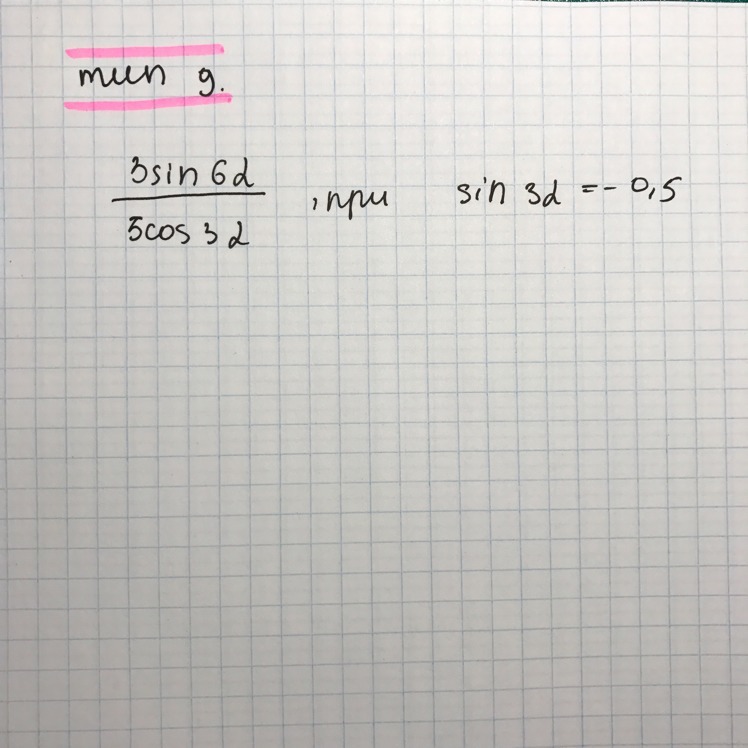 тип 9.
3sin 6α
5cos 3α
, при sin 3α = - 0,5